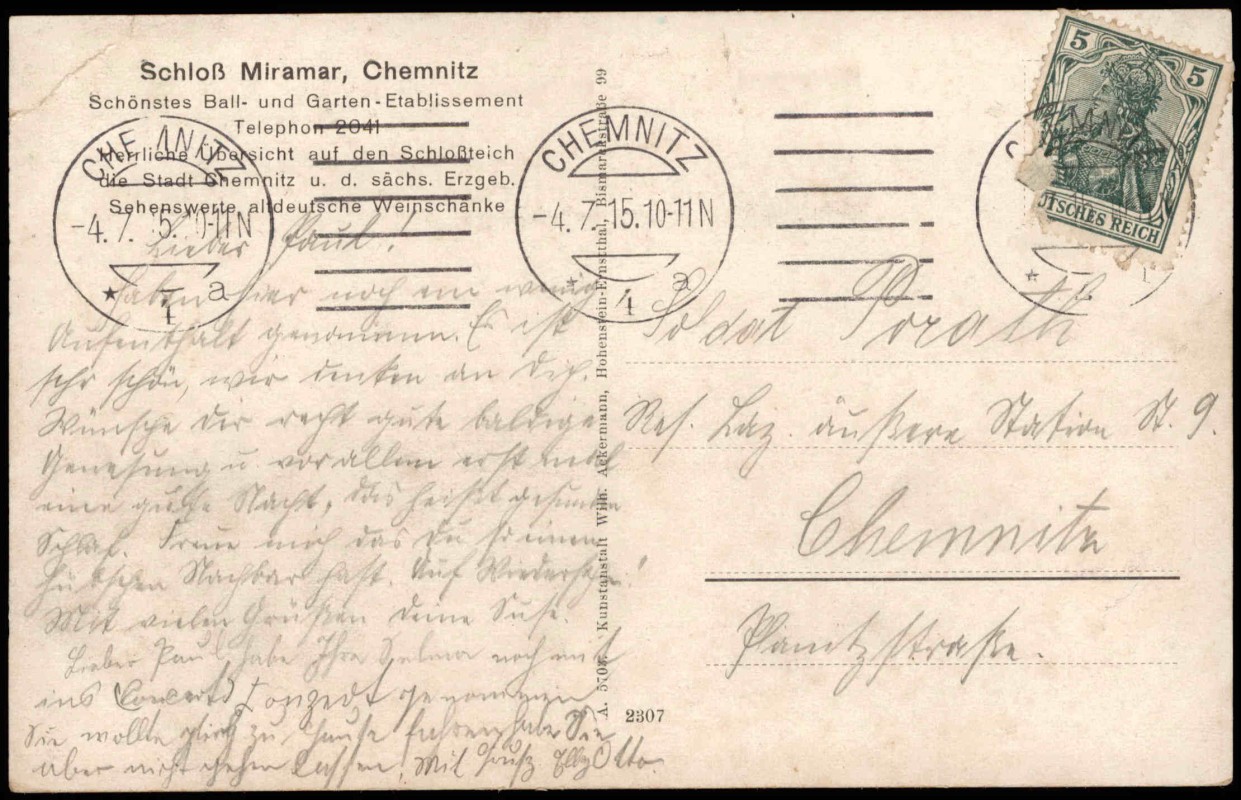 Schloß Miramar, Chemnitz
Schönstes Ball- und Garten-Etablissement
Telephon 2041
Herrliche Übersicht auf den Schloßteich
die Stadt Chemnitz u. d. sächs. Erzgeb.
Sehenswerte altdeutsche Weinschänke
CHEMNITZ
-4.7.15.10-11N
* 4 a
CHEMNITZ
-4.7.15.10-11N
* 4 a
5 5
DEUTSCHES REICH
Lieber Paul!
haben hier noch ein wenig
Aufenthalt genommen. Es ist
sehr schön, wir denken an Dich.
Wünsche Dir recht gute baldige
Genesung u. vor allem erst mal
eine gute Nacht, das heißt gesunden
Schlaf. Freue mich das Du so einen
hübschen Nachbar hast. Auf Wiedersehen!
Mit vielen Grüßen Deine Suse.
Lieber Paul, habe Ihre Selma noch mit
ins Conzert genommen
Sie wollte gleich zu Hause fahren habe Sie
aber nicht gehen lassen! Mit Gruß Otto.
A. 5703. Kunstanstalt Wilh. Ackermann, Hohenstein-Ernstthal, Bismarckstraße 99
2307
Soldat Porath
Res. Laz. äußere Station St. 9.
Chemnitz
Planitzstraße.